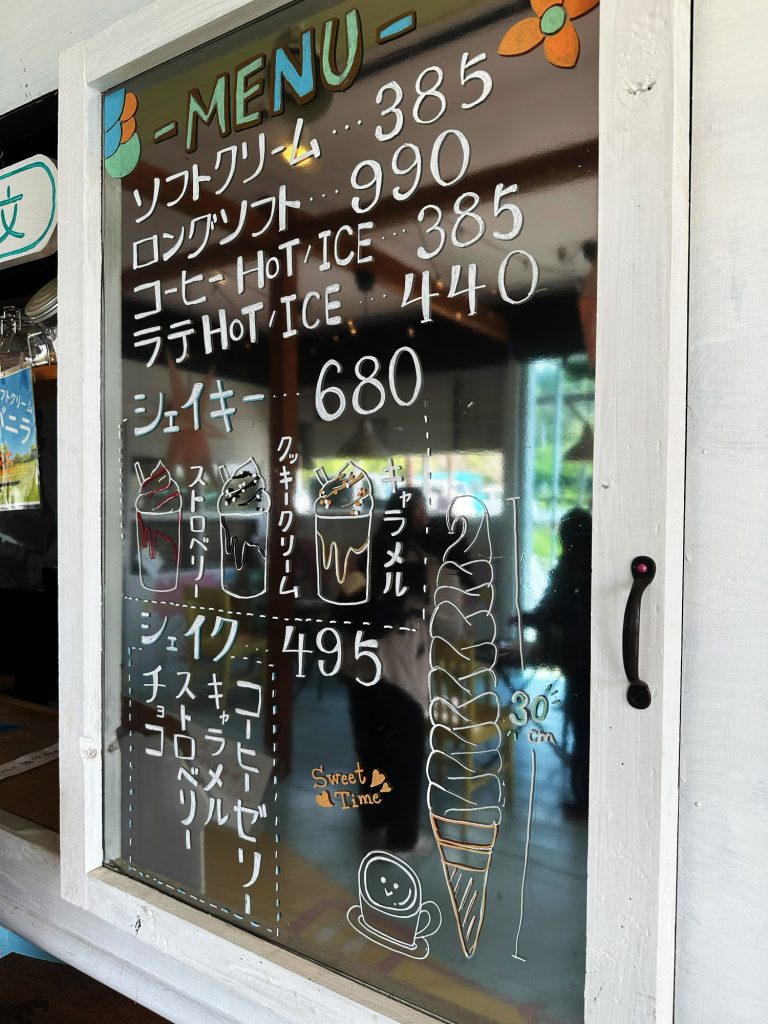 -MENU-
ソフトクリーム…385
ロングソフト…990
コーヒーHOT/ICE…385
ラテHOT/ICE…440
シェイキー…680
ストロベリー
クッキークリーム
キャラメル
シェイク…495
コーヒーゼリー
キャラメル
ストロベリー
チョコ
30
cm
Sweet
Time
文
ソフトクリーム
バニラ